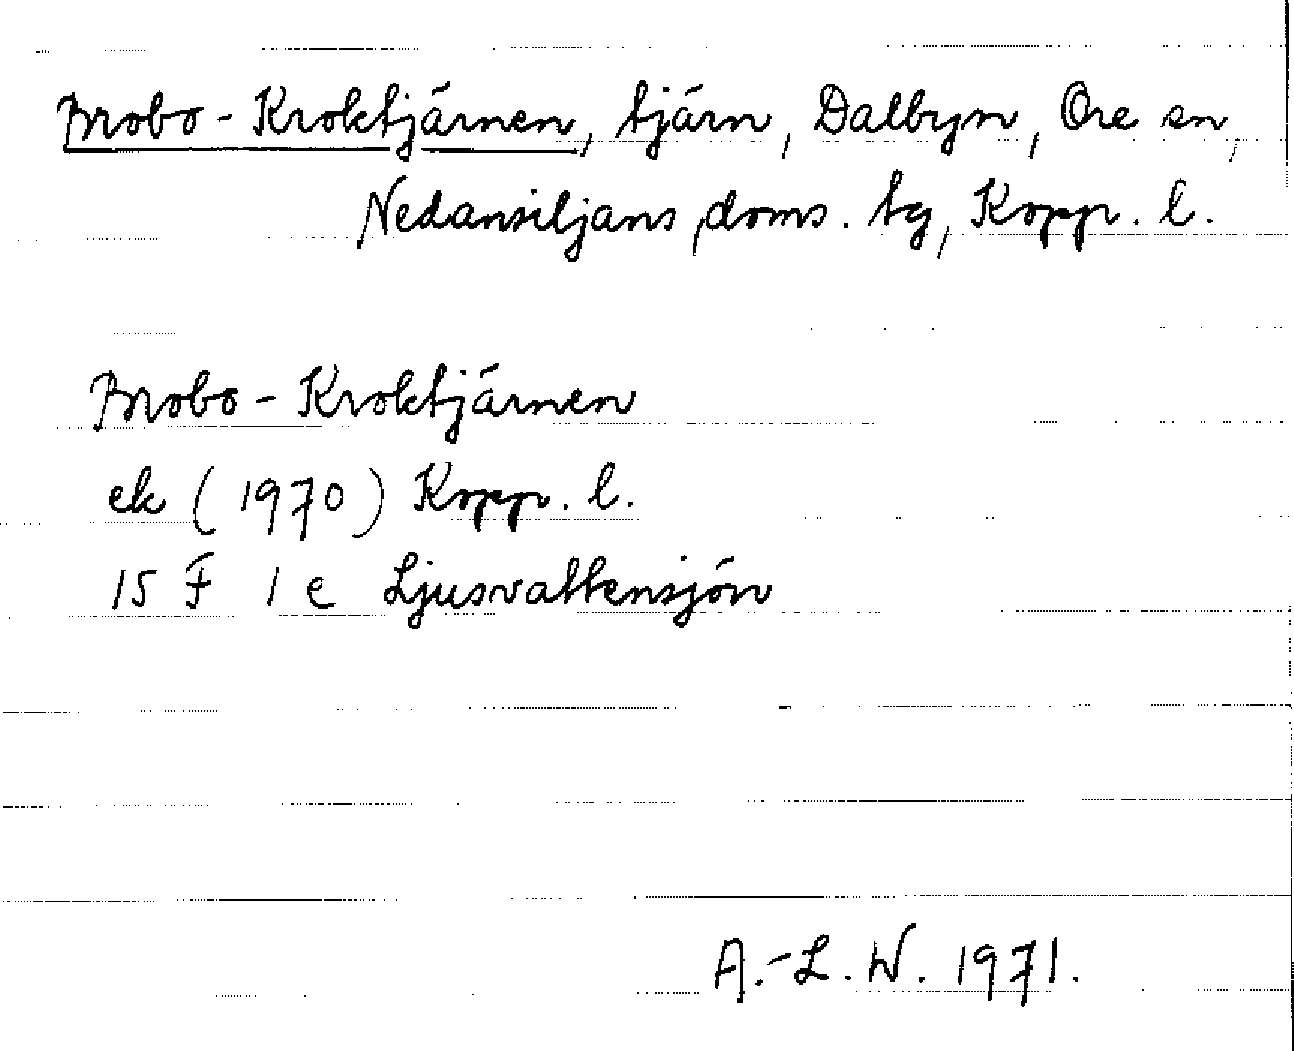 Brobo-Kroktjärnen, tjärn, Dalbyn, Ore sn,
Nedansiljans doms. tg, Kopp. l.
Brobo-Kroktjärnen
ek (1970) Kopp. l.
15 F 1 e Ljusvattensjön
A.-L. W. 1971.